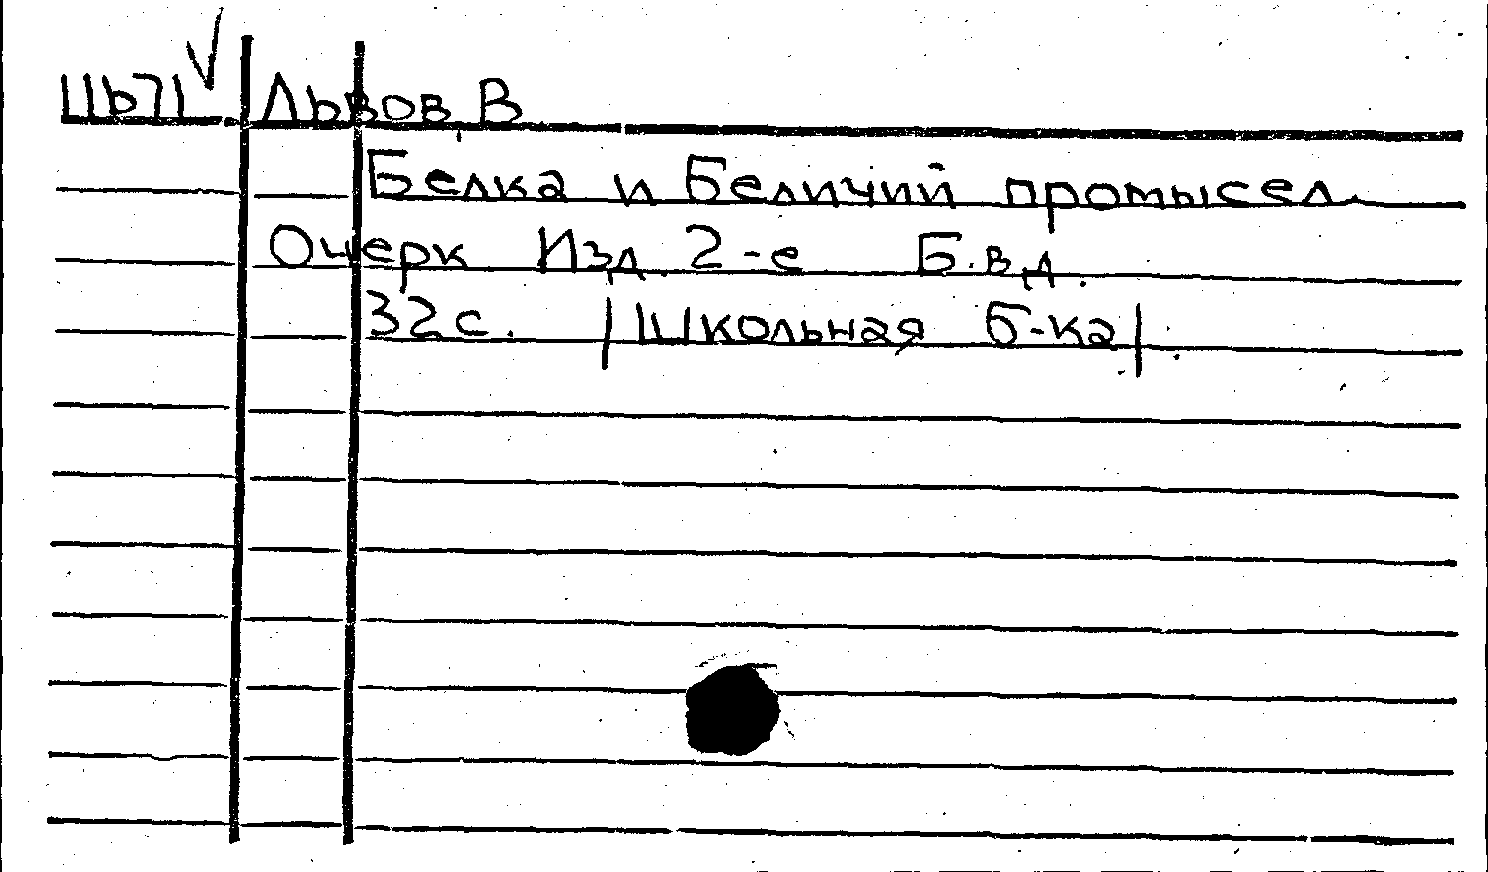 Львов, В
Белка и Беличий промысел.
Очерк Изд. 2-е Б.в.д.
32 с. |Школьная б-ка|.